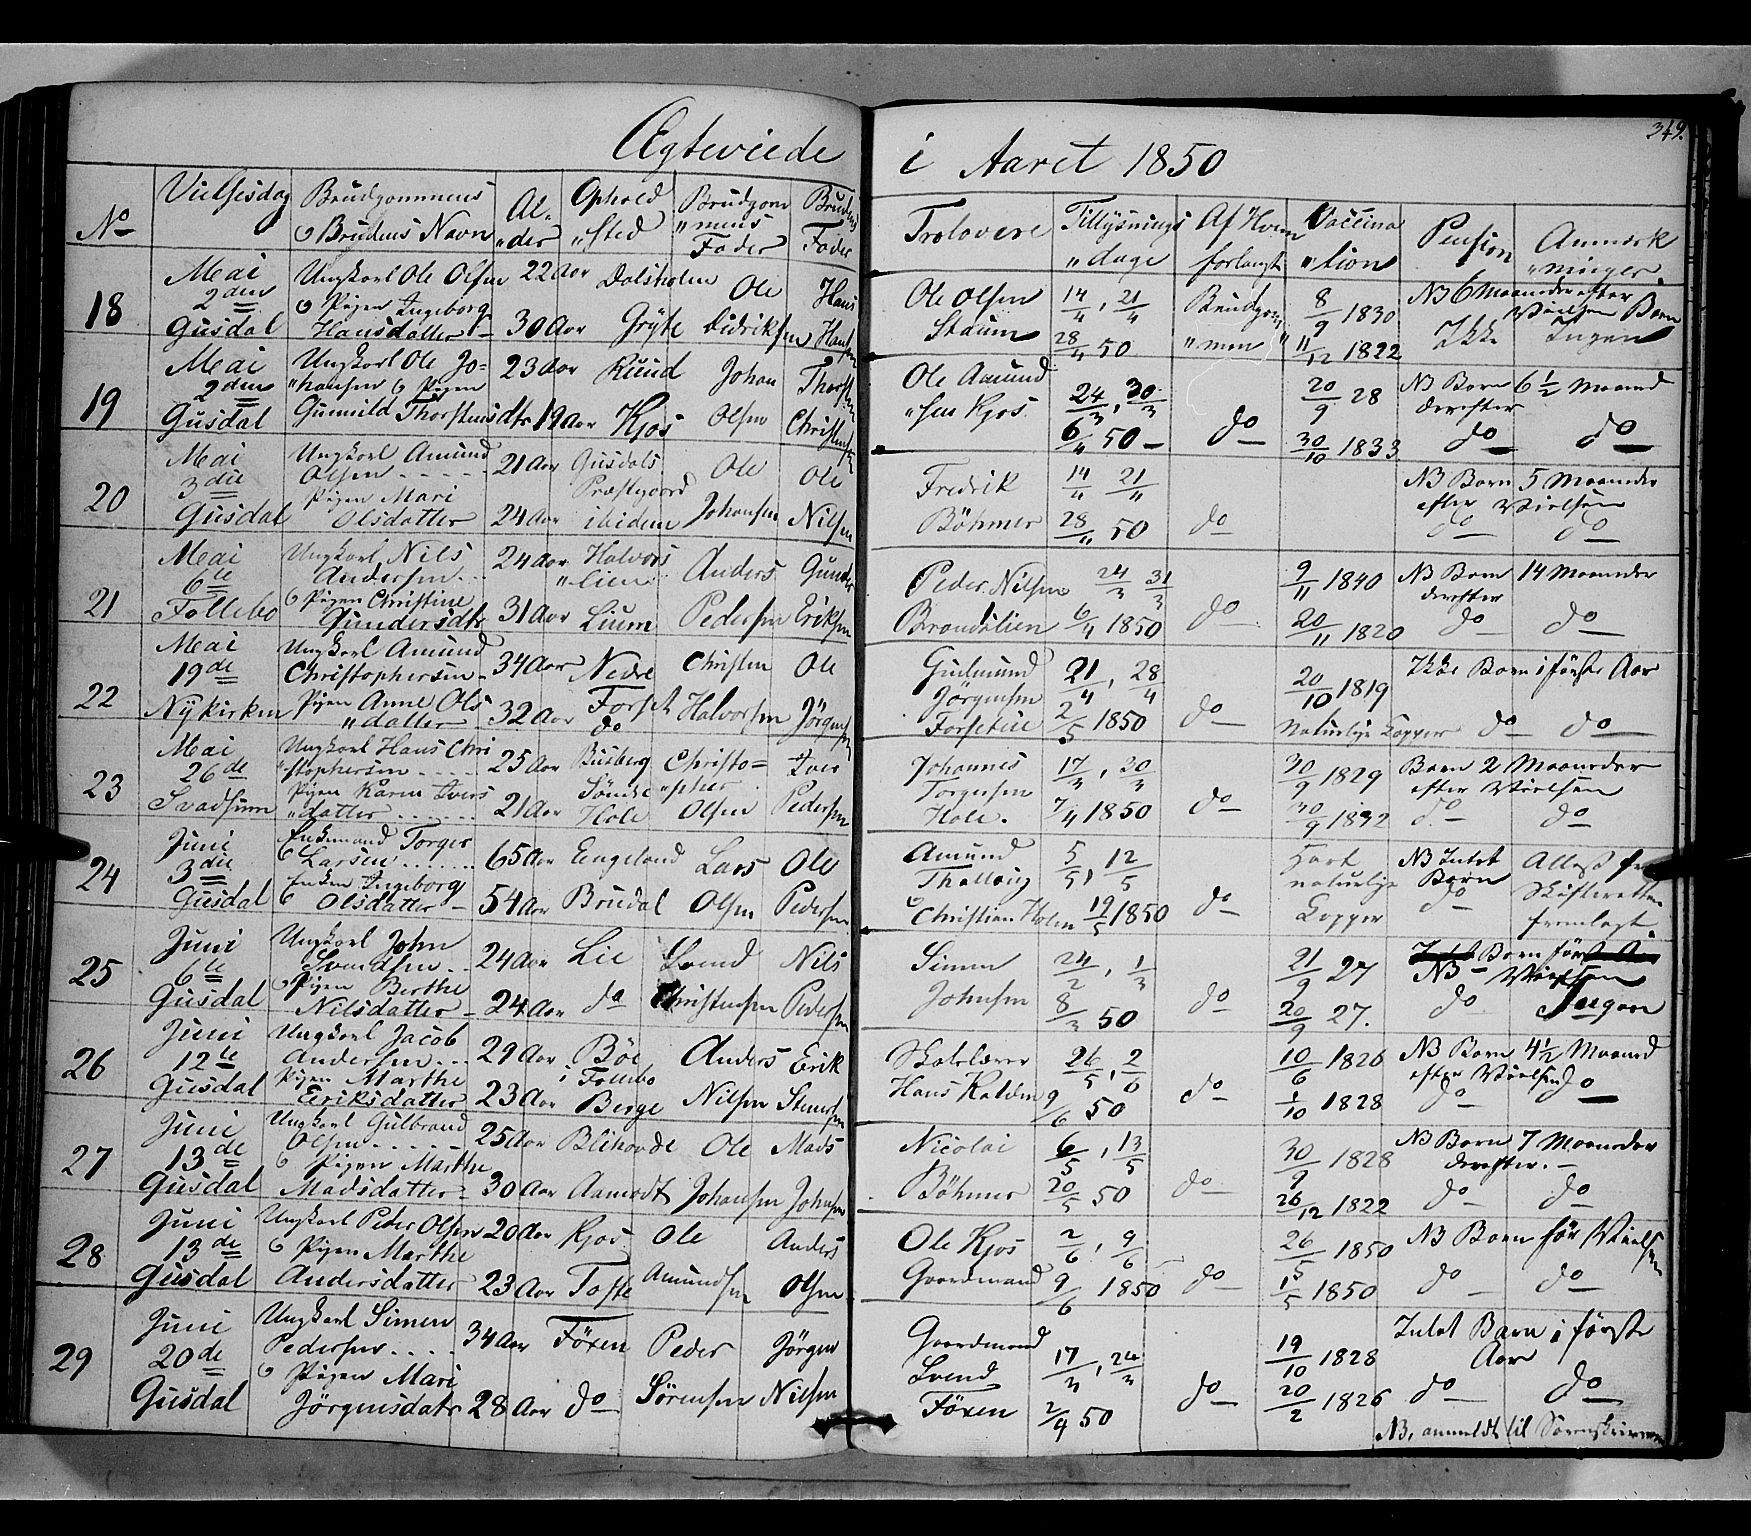 Ægteviede i Aaret 1850
349.
No Vielsesdag Brudgommens & Brudens Navn Al-der Ophold sted Brudgommens Fader Brudens Fader Trolovere Tillysnings dage Af Hvem forlangt Vaccination Pension Anmærkninger
18 Mai 2den Gusdal
Ungkarl Ole Olsen 22 Aar Dalsholen Ole Didriksen
& Pigen Ingeborg Hansdatter 30 Aar Gryte Hans Hansen
Ole Olsen Staum 14/4, 21/4 28/4 50 Brudgommen 8/9 1830 11/12 1822
NB 6 Maaneder efter Vielsen Barn
Ikke Ingen
19 Mai 2den Gusdal
Ungkarl Ole Johansen 23 Aar Ruud Johan Olsen
& Pigen Gunnild Thorstensdtr 19 Aar Kjos Thorsten Christensen
Ole Amundsen Kjos. 24/3, 30/3 6/4 50 do 20/9 28 30/10 1833
NB Barn 6½ Maaned derefter
do do
20 Mai 3die Gusdal
Ungkarl Amund Olsen 21 Aar Gusdals Præstgaard Ole Johansen
Pigen Mari Olsdatter 24 Aar ibidem Ole Nilsen
Fredrik Böhmer 14/4 21/4 28/4 50 do
NB Barn 5 Maaneder efter Vielsen
do do
21 Mai 6te Follebo
Ungkarl Nils Andersen 24 Aar Halvorslien Anders Pedersen
& Pigen Christine Gundersdtr 31 Aar Lium Gunder Eriksen
Peder Nilsen Brandslien 24/3 31/3 6/4 1850 do 9/11 1840 20/11 1820
NB Barn 14 Maaneder derefter
do do
22 Mai 19de Nykirken
Ungkarl Amund Christophersen 34 Aar Nedre Forset Christen Halvorsen
Pigen Anne Olsdatter 32 Aar do Ole Jörgensen
Gulmund Jörgensen Forsetlie 21/4, 28/4 2/5 1850 do 20/10 1819 Naturlige Kopper
Ikke Barn i förste Aar
do do
23 Mai 26de Svadsum
Ungkarl Hans Christophersen 25 Aar Busberg Christopher Olsen
Pigen Karen Ivers datter 21 Aar Söndre Hole Iver Pedersen
Johannes Torgersen Hole. 17/3, 30/3 7/4 1850 do 30/9 1829 30/9 1832
Barn 2 Maaneder efter Vielsen
do do
24 Juni 3die Gusdal
Enkemand Torger Larsen 65 Aar Engeland Lars Olsen
& Enken Ingeborg Olsdatter 54 Aar Brudal Ole Pedersen
Amund Thallaug & Christian Holen 5/5, 12/5 19/5 1850 do Havt naturlige Kopper
NB Intet Barn do
Attest fra Skifteretten fremlagt.
25 Juni 6te Gusdal
Ungkarl John Svendsen 24 Aar Lie Svend Christensen
& Pigen Berthe Nilsdatter 24 Aar do Nils Pedersen
Simen Johnsen 24/2, 1/3 8/3 50 do 21/9 27 20/9 27.
NB Barn før Vielsen
do Ingen
26 Juni 12te Gusdal
Ungkarl Jacob Andersen 29 Aar Böe i Follebo Anders Nilsen
Pigen Marthe Eriksdatter 23 Aar Berge Erik Stenersen
Skolelærer Hans Kalden 26/5, 2/6 9/6 50 do 10/6 1826 1/10 1828
NB Barn 4½ Maaned efter Vielsen
do do
27 Juni 13de Gusdal
Ungkarl Gulbrand Olsen 25 Aar Blihovde Ole Johansen
& Pigen Marthe Madsdatter 30 Aar Aamodt Mads Johnsen
Nicolai Böhmer 6/5, 13/5 20/5 50 do 30/9 1828 26/12 1822
NB Barn 7 Maaneder derefter.
do do
28 Juni 13de Gusdal
Ungkarl Peder Olsen 20 Aar Kjos Ole Amundsen
& Pigen Marthe Andersdatter 23 Aar Tofte Anders Olsen
Ole Kjos Gaardmand 2/6, 9/6 9/6 1850 do 26/5 1850 1/5 1850
NB Barn för Vielsen
do do
29 Juni 20de Gusdal
Ungkarl Simen Pedersen 34 Aar Föxen Peder Sörensen
& Pigen Mari Jörgensdatr 28 Aar do Jörgen Nilsen
Gaardmand Svend Föxen 17/3, 24/3 2/4 50 do 19/10 1828 20/2 1826
Intet Barn i förste Aar
do do
NB, anmeldt til Sorenskriveren